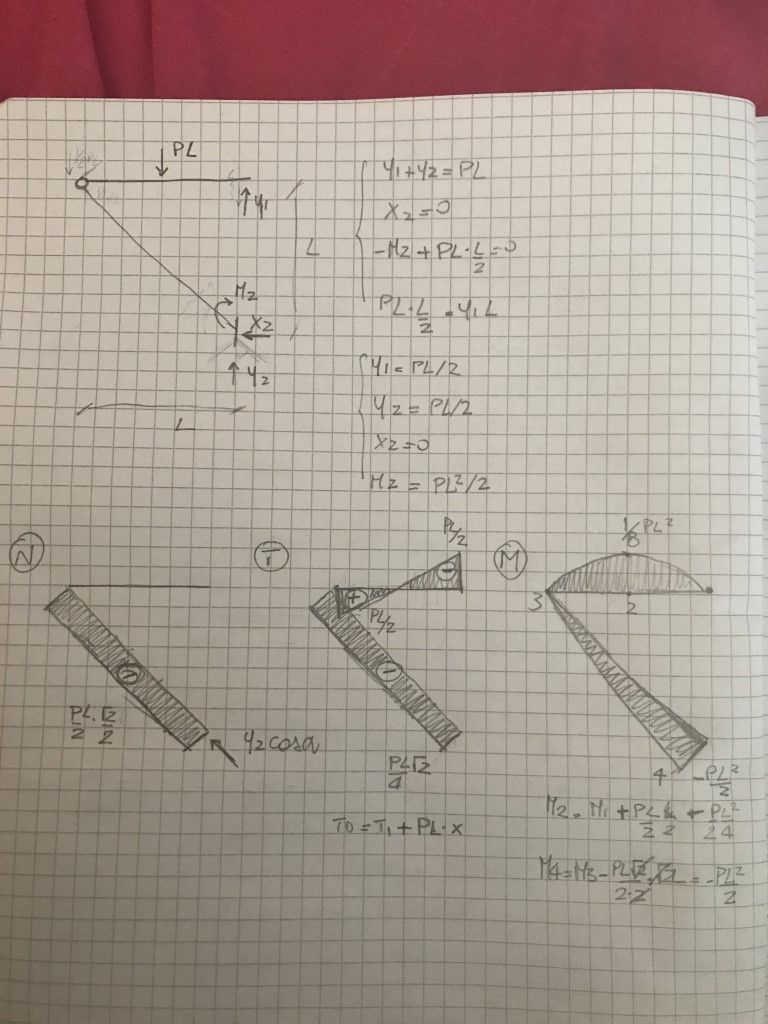 PL
Y1
L
M2
X2
Y2
L
Y1+Y2=PL
X2=0
-M2+PL·L/2=0
PL·L/2=Y1L
Y1=PL/2
Y2=PL/2
X2=0
M2=PL²/2
N
-
PL/2·√2/2
Y2cosα
T
PL/2
+
-
PL/2
-
PL/4√2
T0=T1+PL·x
M
1/8 PL²
3
2
4
-PL²/2
M4=M3-PL√2/2·2·√2L=-PL²/2